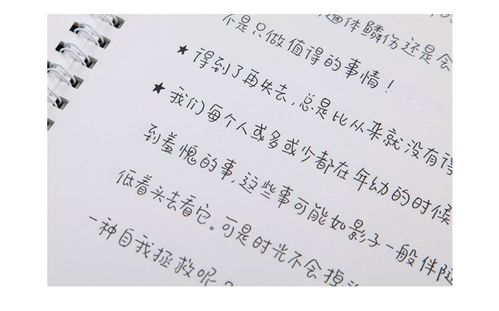 遍体鳞伤还是会
不是只做值得的事情！
★得到了再失去，总是比从来就没有得
★我们每个人或多或少都在年幼的时候
到羞愧的事，这些事可能如影子一般伴随
低着头去看它。可是时光不会掉
一种自我拯救呢？